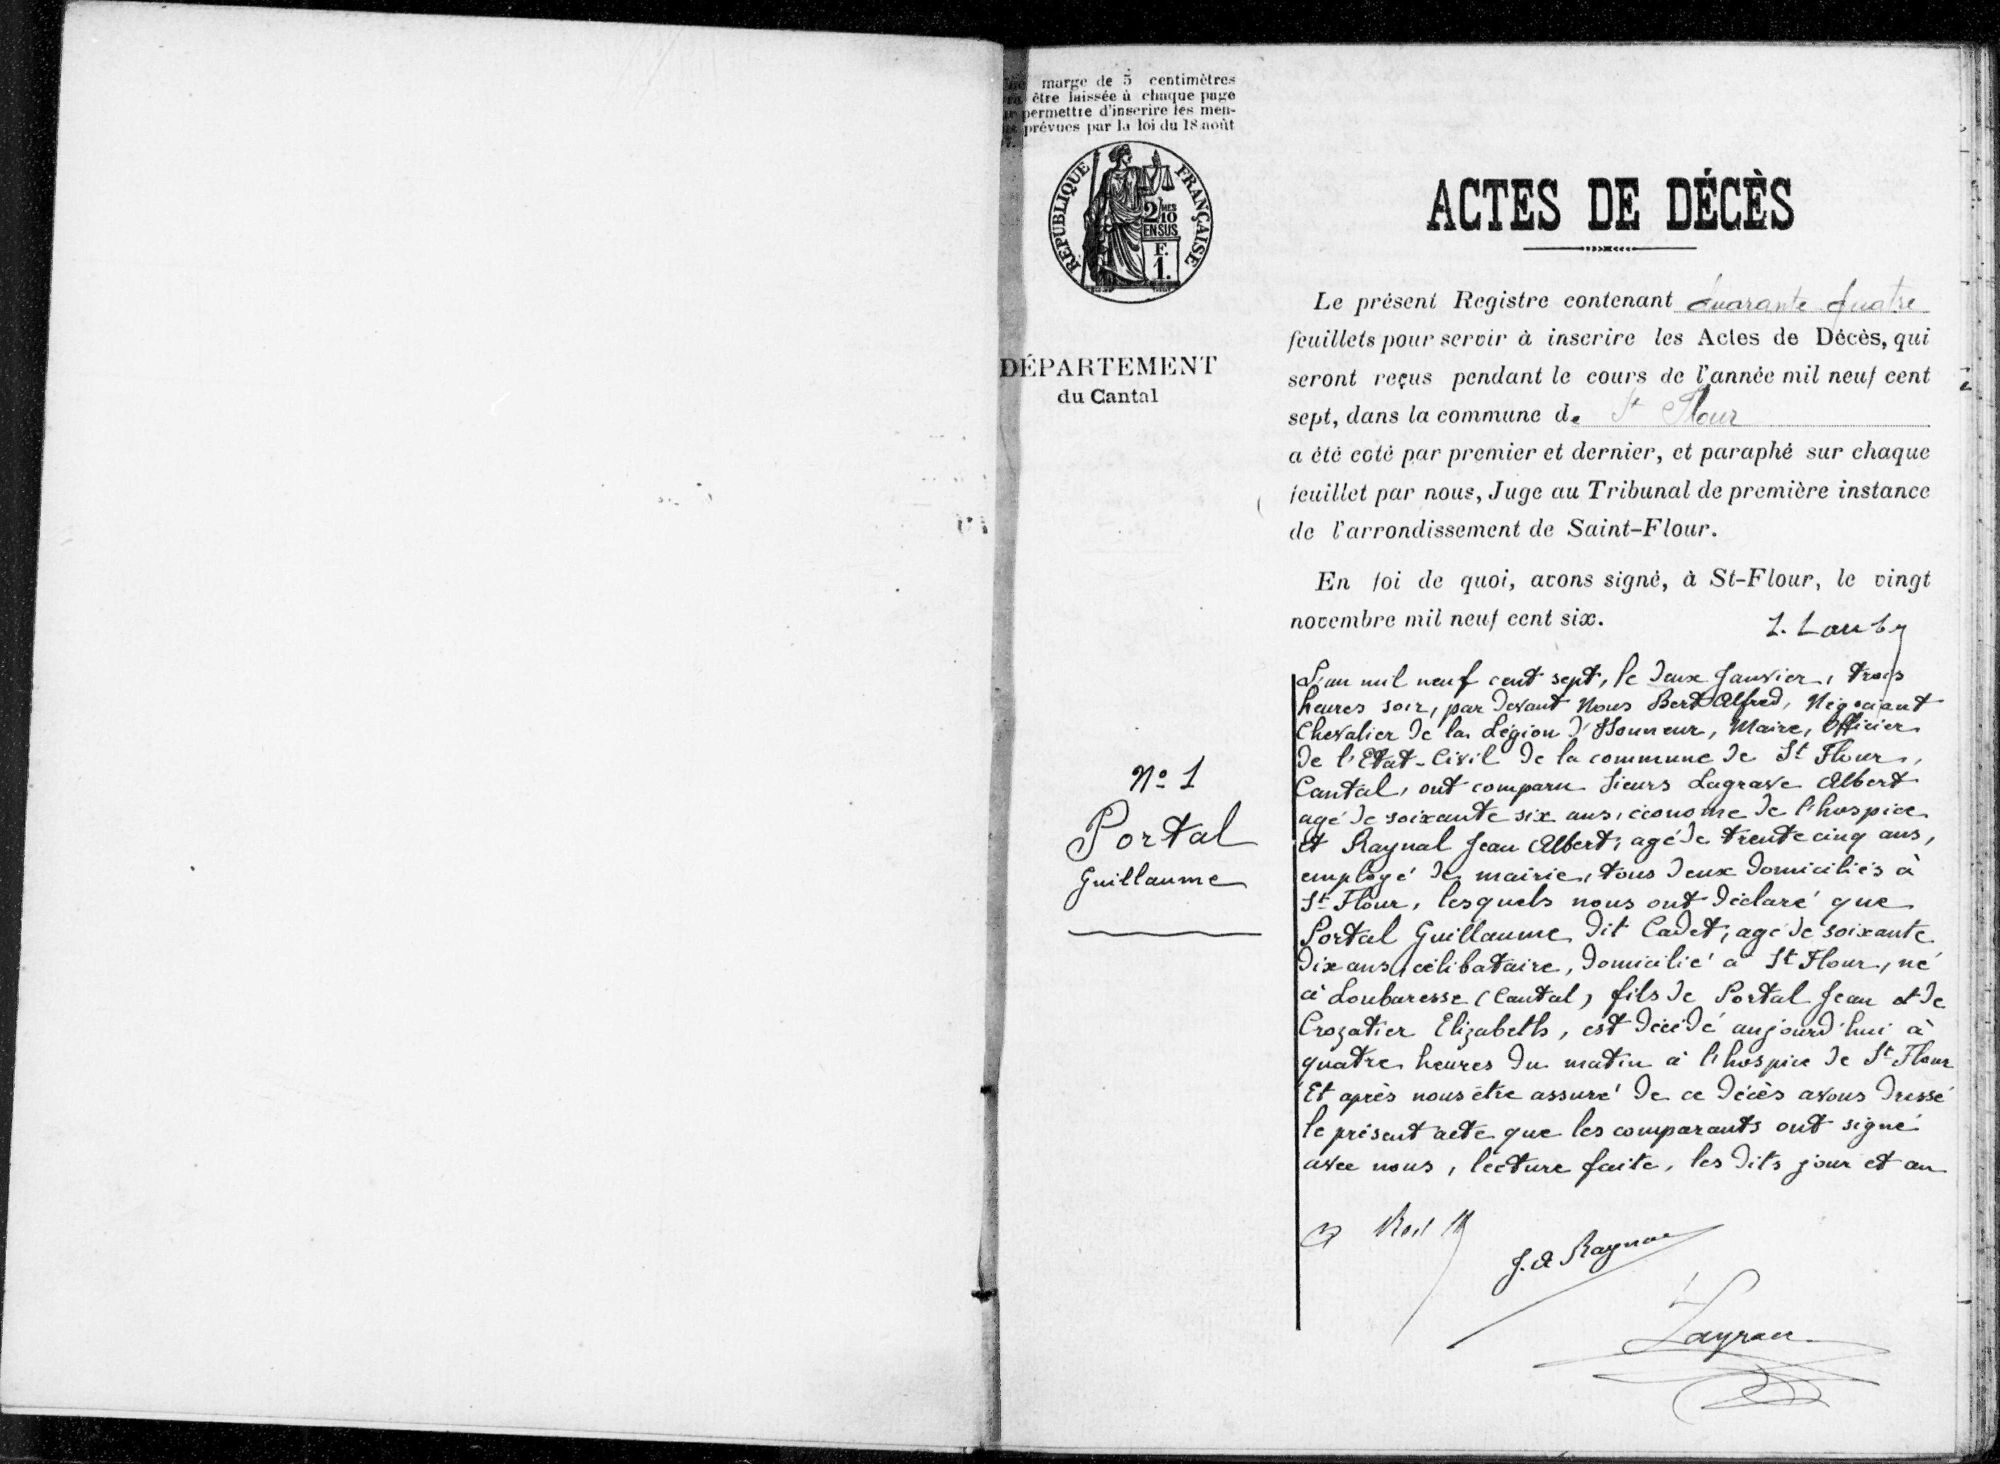 marge de 5 centimètres
être laissée à chaque page
permettre d'inscrire les men-
prévues par la loi du 18 août
RÉPUBLIQUE FRANÇAISE
2 MES
10
EN SUS
F.
1.
DÉPARTEMENT
du Cantal
ACTES DE DÉCÈS
Le présent Registre contenant quarante quatre
feuillets pour servir à inscrire les Actes de Décès, qui
seront reçus pendant le cours de l'année mil neuf cent
sept, dans la commune de St Flour
a été coté par premier et dernier, et paraphé sur chaque
feuillet par nous, Juge au Tribunal de première instance
de l'arrondissement de Saint-Flour.
En foi de quoi, avons signé, à St-Flour, le vingt
novembre mil neuf cent six.
No 1
Portal
Guillaume
L'an mil neuf cent sept, le deux Janvier, trois
heures soir, par devant Nous Bert Alfred, Négociant
Chevalier de la Légion d'Honneur, Maire, Officier
de l'Etat-Civil de la commune de St Flour,
Cantal, ont comparu Sieurs Lagrave Albert
agé de soixante six ans, économe de l'hospice
et Raynal Jean Albert, agé de trente cinq ans,
employé de mairie, tous deux domiciliés à
St Flour, lesquels nous ont déclaré que
Portal Guillaume dit Cadet, agé de soixante
dix ans, célibataire, domicilié à St Flour, né
à Loubaresse (Cantal) fils de Portal Jean et de
Crozatier Elizabeth, est décédé aujourd'hui à
quatre heures du matin à l'hospice de St Flour
Et après nous être assuré de ce décès avons dressé
le présent acte que les comparants ont signé
avec nous, lecture faite, les dits jour et an